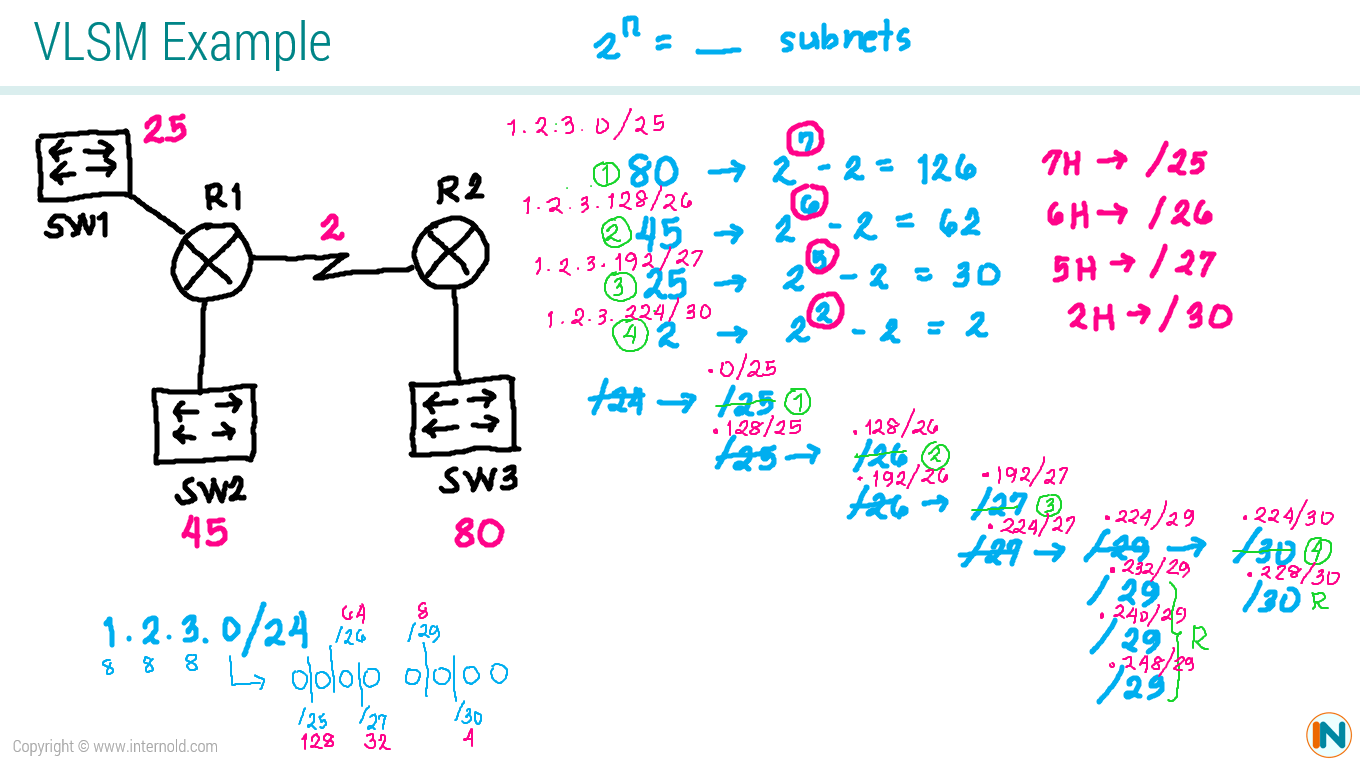 VLSM Example
2^n = __ subnets
25
SW1
R1
2
R2
SW2
45
SW3
80
1.2.3.0/25
① 80 → 2^7 - 2 = 126
1.2.3.128/26
② 45 → 2^6 - 2 = 62
1.2.3.192/27
③ 25 → 2^5 - 2 = 30
1.2.3.224/30
④ 2 → 2^2 - 2 = 2
7H → /25
6H → /26
5H → /27
2H → /30
.0/25
/24 → /25 ①
.128/25 .128/26
/25 → /26 ②
.192/26 .192/27
/26 → /27 ③
.224/27 .224/29 .224/30
/27 → /29 → /30 ④
.232/29 .228/30
/29 /30 R
.240/29
/29 R
.248/29
/29
1.2.3.0/24
8 8 8
64 8
/26 /29
→ 0000 0000
/25 /27 /30
128 32 4
Copyright © www.internold.com
IN